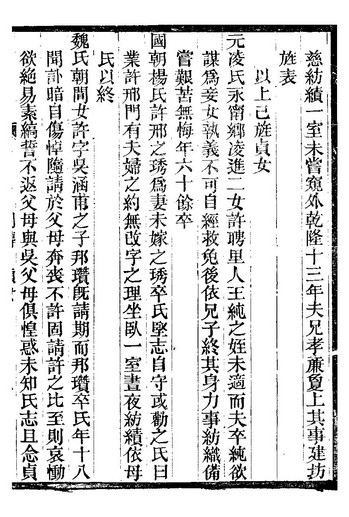 慈紡績一室未嘗窺外乾隆十三年夫兄孝廉夏上其事建坊
旌表
以上已旌貞女
元凌氏永甯鄉凌進二女許聘里人王純之姪未適而夫卒純欲
謀為妾女執義不可自經救免後依兄子終其身力事紡織備
嘗艱苦無悔年六十餘卒
國朝楊氏許邢之琇為妻未嫁之琇卒氏堅志自守或勸之氏曰
業許邢門有夫婦之約無改字之理坐臥一室晝夜紡績依母
氏以終
魏氏朝間女許字吳涵甫之子那瓚旣請期而那瓚卒氏年十八
聞訃暗自傷悼隨請於父母奔喪不許固請許之比至則哀慟
欲絕易素縞誓不返父母與吳父母俱惶惑未知氏志且念貞